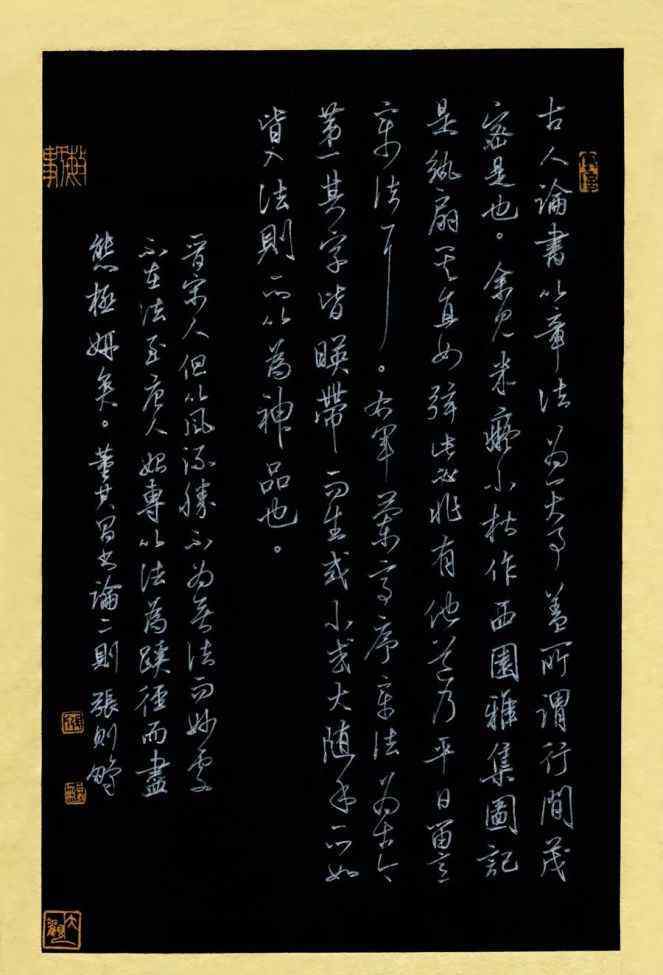 古人論書以章法為一大事蓋所謂行間茂
密是也。余見米癡小楷作西園雅集圖記
是紈扇其直如弦此必非有他道乃平日留意
章法耳。右軍蘭亭序章法為古今
第一其字皆暎帶而生或小或大隨手所如
皆入法則所以為神品也。
晉宋人但以風流勝不為無法而妙處
不在法至唐人始專以法為蹊徑而盡
態極妍矣。董其昌書論二則 張則